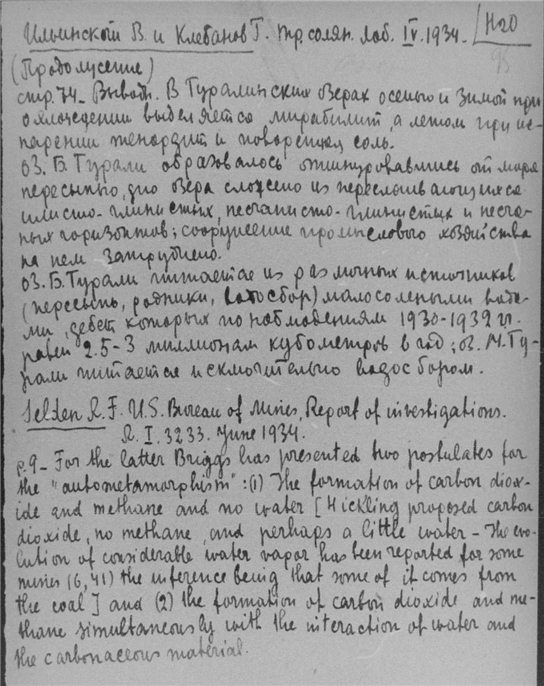 Ильинский В. и Клебанов Г. Тр. солян. лаб. IV. 1934. H₂O
95
(Продолжение)
стр. 74 – Выводы. В Туралинских озерах осенью и зимой при
охлаждении выделяется мирабилит, а летом при ис-
парении тенардит и поваренная соль.
оз. Б. Турали образовалось отшнуровавшись от моря
пересыпью, дно озера сложено из переслаивающихся
илисто-глинистых, песчанисто-глинистых и песча-
ных горизонтов; сооружение промыслового хозяйства
на нем затруднено.
оз. Б. Турали питается из различных источников
(пересыпь, родники, водосбор) малосолеными вода-
ми, дебет которых по наблюдениям 1930-1932 гг.
равен 2.5-3 миллионам кубометров в год; оз. М. Ту-
рали питается исключительно водосбором.
Selden R. F. U.S. Bureau of Mines, Report of investigations.
R. I. 3233. June 1934.
p. 9 – For the latter Briggs has presented two postulates for
the "autometamorphism": (1) The formation of carbon diox-
ide and methane and no water [Hickling proposed carbon
dioxide, no methane, and perhaps a little water – The evo-
lution of considerable water vapor has been reported for some
mines (6, 41) the inference being that some of it comes from
the coal] and (2) the formation of carbon dioxide and me-
thane simultaneously with the interaction of water and
the carbonaceous material.